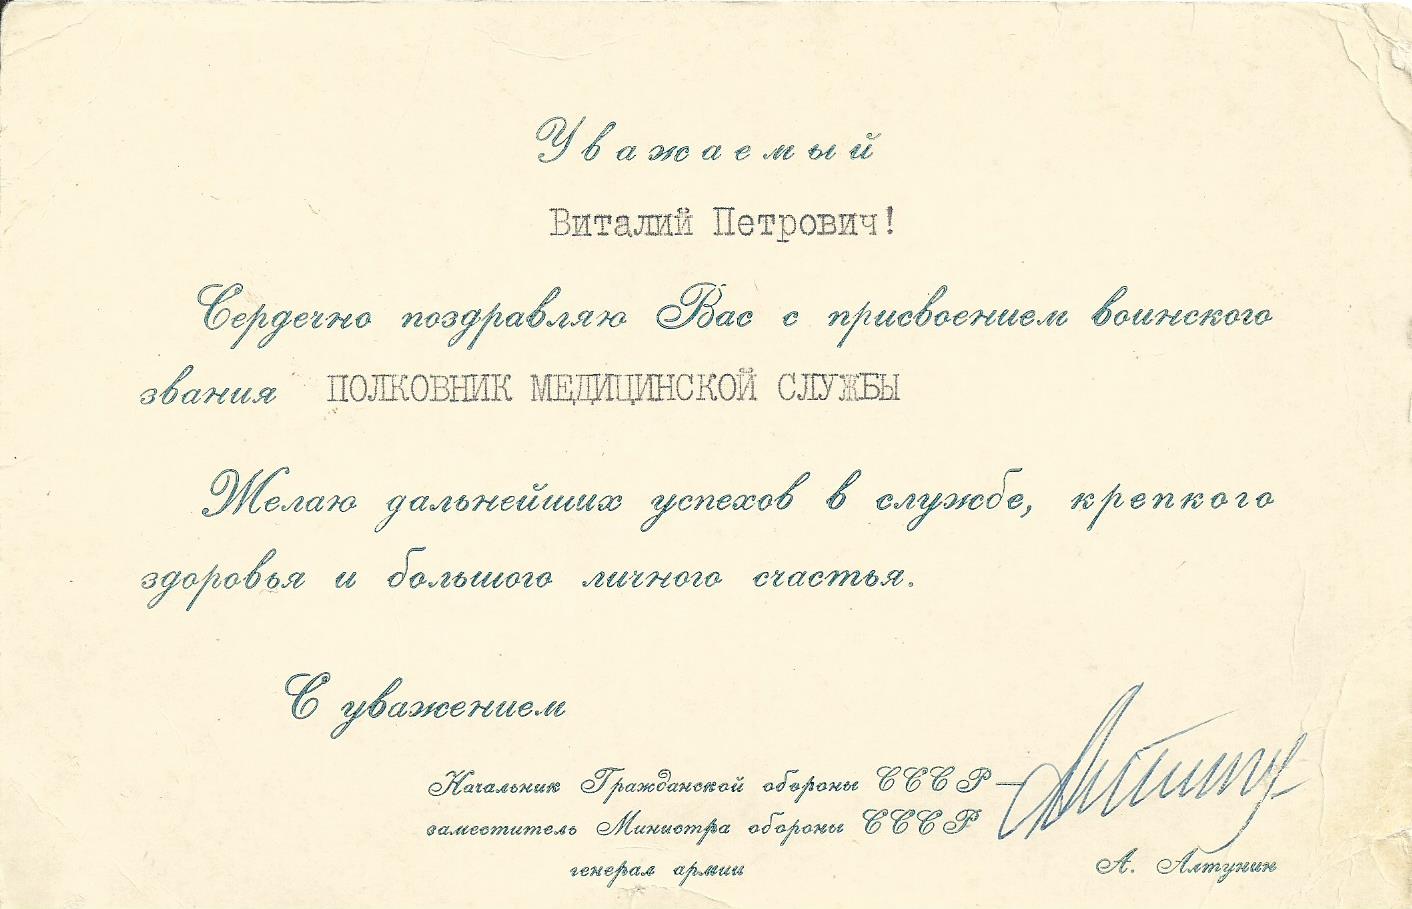 Уважаемый
Виталий Петрович!
Сердечно поздравляю Вас с присвоением воинского
звания ПОЛКОВНИК МЕДИЦИНСКОЙ СЛУЖБЫ
Желаю дальнейших успехов в службе, крепкого
здоровья и большого личного счастья.
С уважением
Начальник Гражданской обороны СССР —
заместитель Министра обороны СССР
генерал армии А. Алтунин